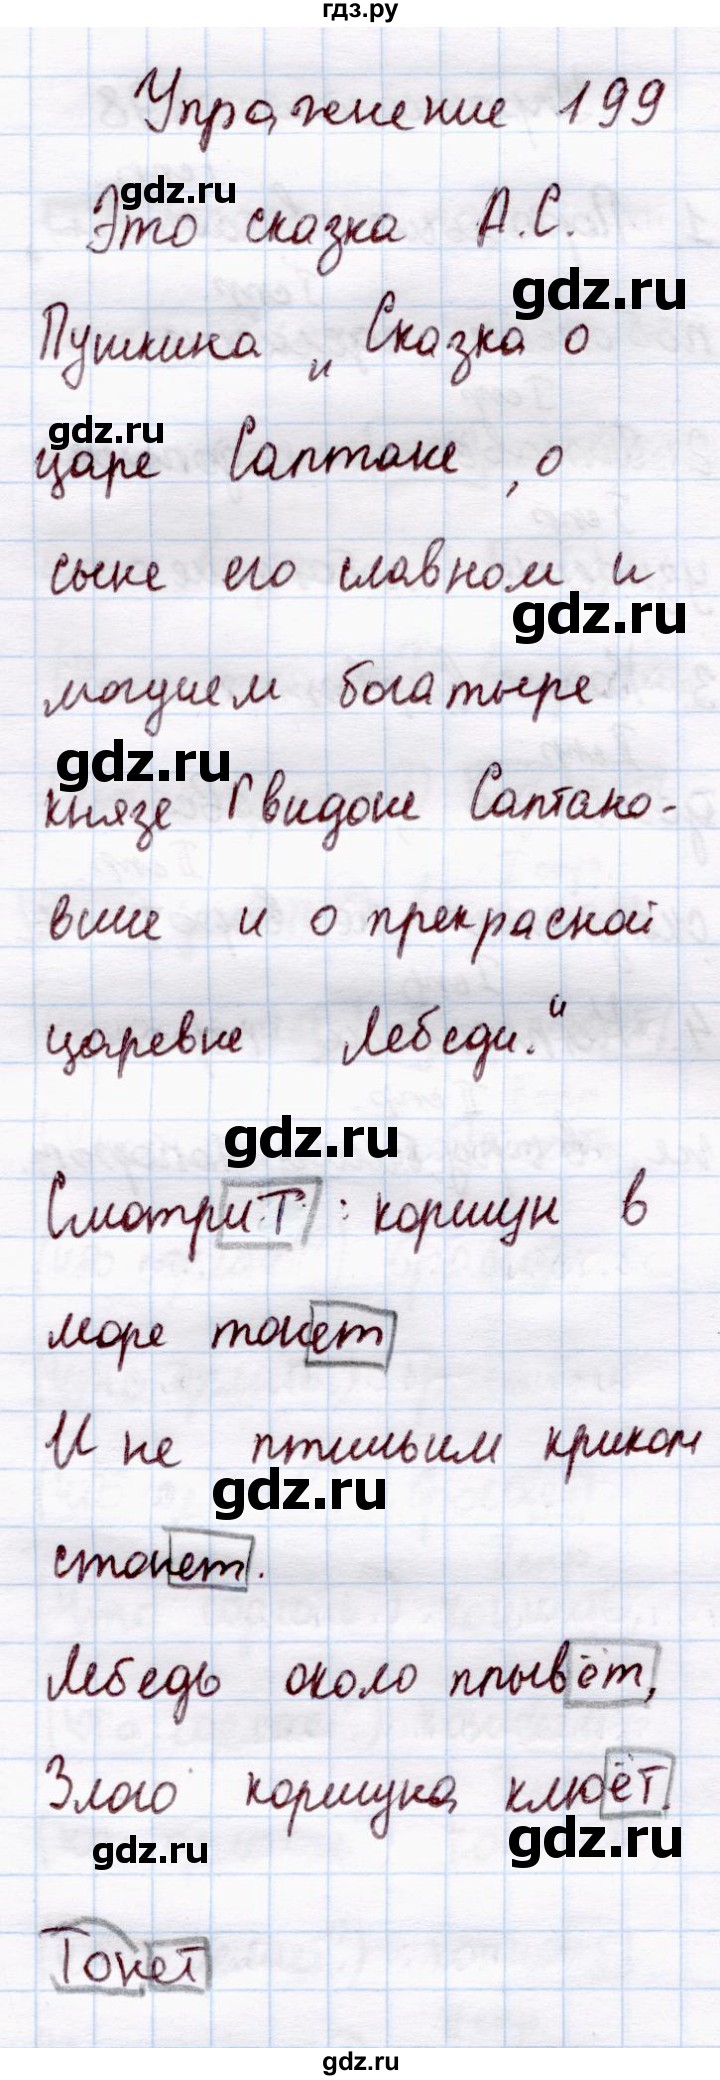 гдз.ру
Упражнение 199
gdz.ru
Это сказка А.С.
gdz.ru
Пушкина „Сказка о
gdz.ru
царе Салтане, о
сыне его славном и
gdz.ru
могучем богатыре
gdz.ru
князе Гвидоне Салтано-
виче и о прекрасной
царевне Лебеди."
gdz.ru
Смотрит: коршун в
море тонет
И не птичьим криком
gdz.ru
стонет.
Лебедь около плывёт,
Злого коршуна клюёт.
gdz.ru
gdz.ru
Тонет
gdz.ru